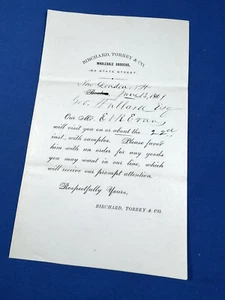 BIRCHARD, TORREY & CO.
WHOLESALE GROCERS,
STATE STREET
New London
Geo. Wallace Esq
Our Mr. E. H. Evans
will visit you on or about the 22nd
inst., with samples. Please favor
him with an order for any goods
you may want in our line, which
will receive our prompt attention.
Respectfully Yours,
BIRCHARD, TORREY & CO.